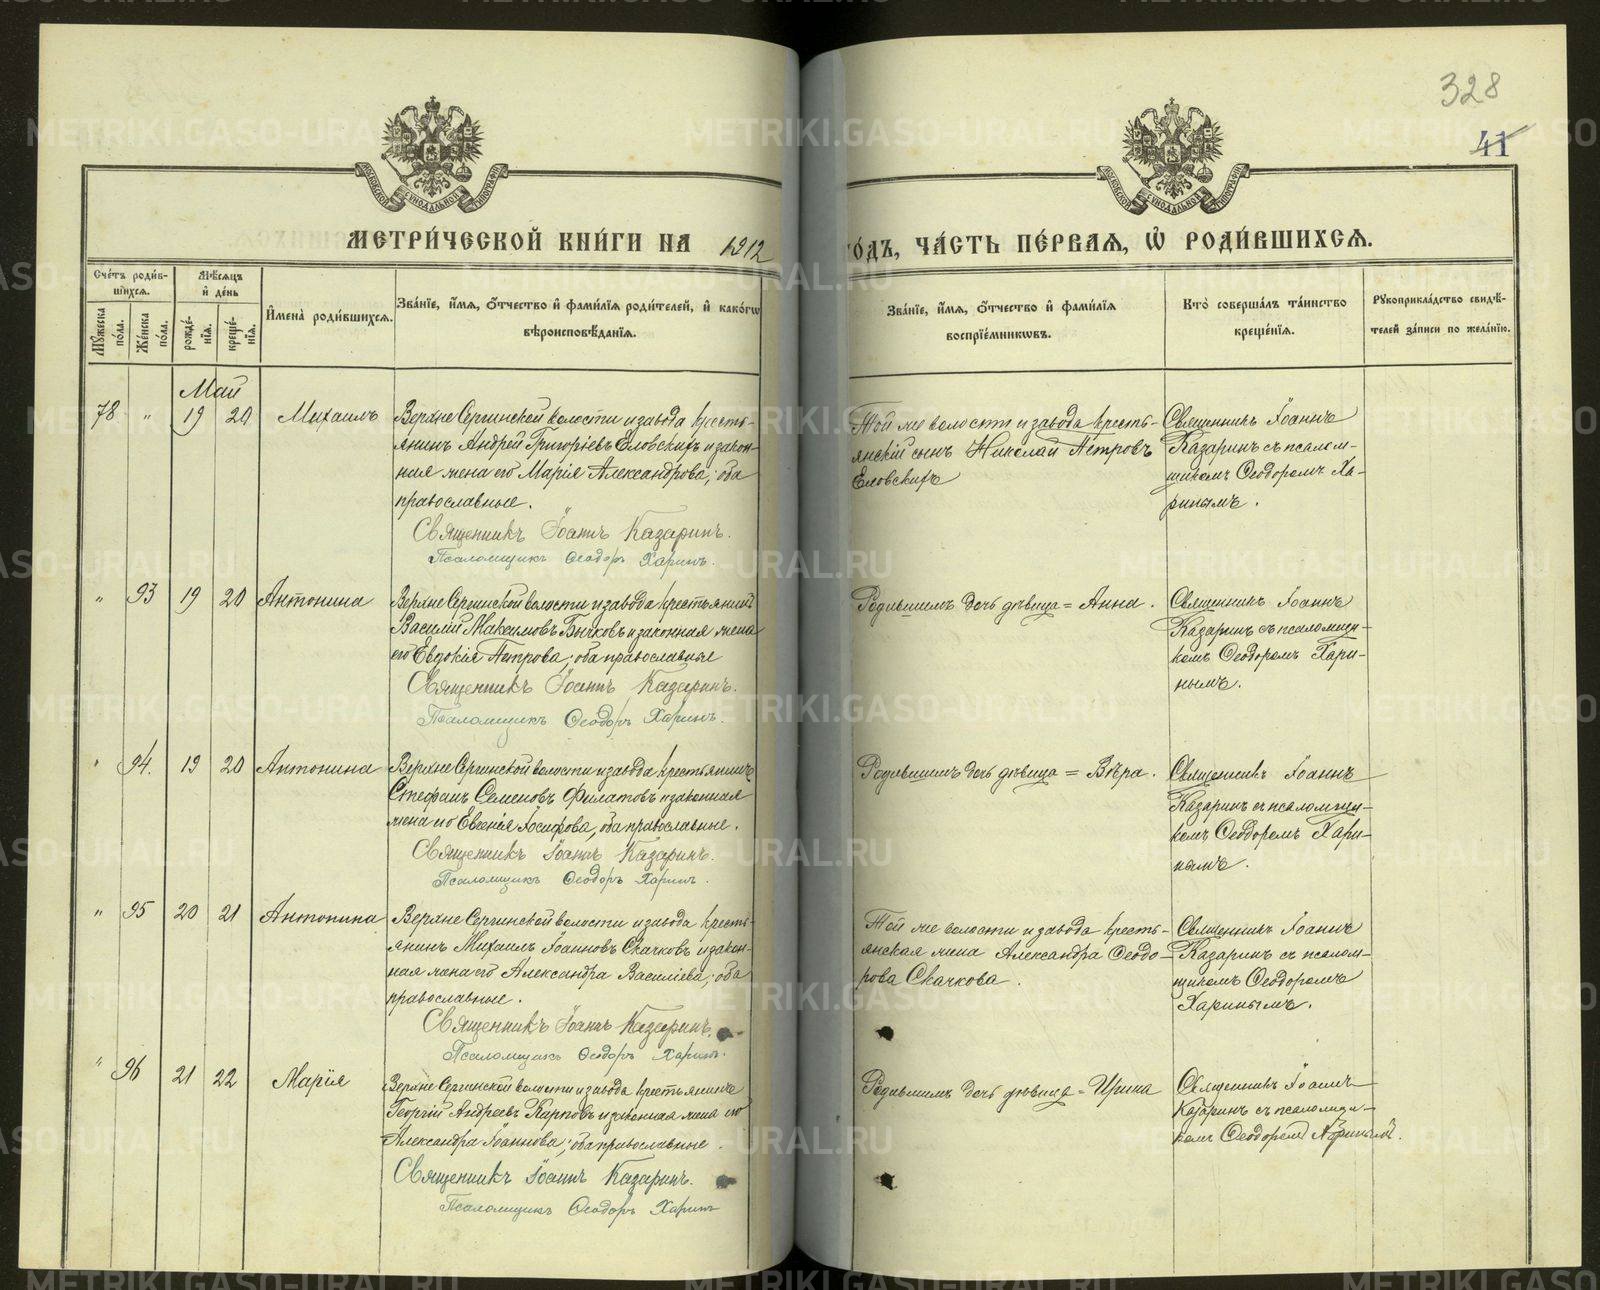 328
41
МЕТРИ́ЧЕСКОЙ КНИ́ГИ НА 1912
ГО́ДЪ, ЧА́СТЬ ПЕ́РВАЯ, Ѽ РОДИ́ВШИХСЯ.
Сче́тъ роди́в-
шихся.
Мѣ́сяцъ
и҆ де́нь
Мꙋ́жеска
по́ла.
Же́нска
по́ла.
рожде́-
нїѧ.
креще́-
нїѧ.
И҆мена̀ роди́вшихся.
Зва́нїе, и҆́мѧ, ѻ҆́тчество и҆ фами́лїѧ роди́телей, и҆ како́гѡ
вѣроисповѣ́данїѧ.
Зва́нїе, и҆́мѧ, ѻ҆́тчество и҆ фами́лїѧ
воспрїе́мникѡвъ.
Кто̀ соверша́лъ та́инство
креще́нїѧ.
Рꙋкоприкла́дство свидѣ́-
телей за́писи по жела́нїю.
Май
78 " 19 20 Михаилъ
Верхне Сергинской волости и завода кресть-
янинъ Андрей Григорiевъ Еловскихъ и закон-
ная жена его Марiя Александрова, оба
православные.
Священникъ Iоаннъ Казаринъ.
Псаломщикъ Ѳеодоръ Харинъ.
Той же волости и завода кресть-
янскiй сынъ Николай Петровъ
Еловскихъ
Священникъ Iоаннъ
Казаринъ съ псалом-
щикомъ Ѳеодоромъ Ха-
ринымъ.
" 93 19 20 Антонина
Верхне Сергинской волости и завода крестьянинъ
Василiй Максимовъ Бычковъ и законная жена
его Евдокiя Петрова, оба православные
Священникъ Iоаннъ Казаринъ.
Псаломщикъ Ѳеодоръ Харинъ.
Родившимъ дочь дѣвица = Анна.
Священникъ Iоаннъ
Казаринъ съ псаломщи-
комъ Ѳеодоромъ Хари-
нымъ.
" 94. 19 20 Антонина
Верхне Сергинской волости и завода крестьянинъ
Стефанъ Семеновъ Филатовъ и законная
жена его Евгенiя Iосифова, оба православные.
Священникъ Iоаннъ Казаринъ.
Псаломщикъ Ѳеодоръ Харинъ.
Родившимъ дочь дѣвица = Вѣра.
Священникъ Iоаннъ
Казаринъ съ псаломщи-
комъ Ѳеодоромъ Хари-
нымъ.
" 95 20 21 Антонина
Верхне Сергинской волости и завода кресть-
янинъ Михаилъ Iоанновъ Скачковъ и закон-
ная жена его Александра Василiева, оба
православные.
Священникъ Iоаннъ Казаринъ.
Псаломщикъ Ѳеодоръ Харинъ.
Той же волости и завода кресть-
янская жена Александра Ѳеодо-
рова Скачкова.
Священникъ Iоаннъ
Казаринъ съ псалом-
щикомъ Ѳеодоромъ
Харинымъ.
" 96 21 22 Марiя
Верхне Сергинской волости и завода крестьянинъ
Георгiй Андреевъ Карповъ и законная жена его
Александра Iоаннова, оба православные.
Священникъ Iоаннъ Казаринъ.
Псаломщикъ Ѳеодоръ Харинъ
Родившимъ дочь дѣвица = Ирина
Священникъ Iоаннъ
Казаринъ съ псаломщи-
комъ Ѳеодоромъ Харинымъ.
METRIKI.GASO-URAL.RU